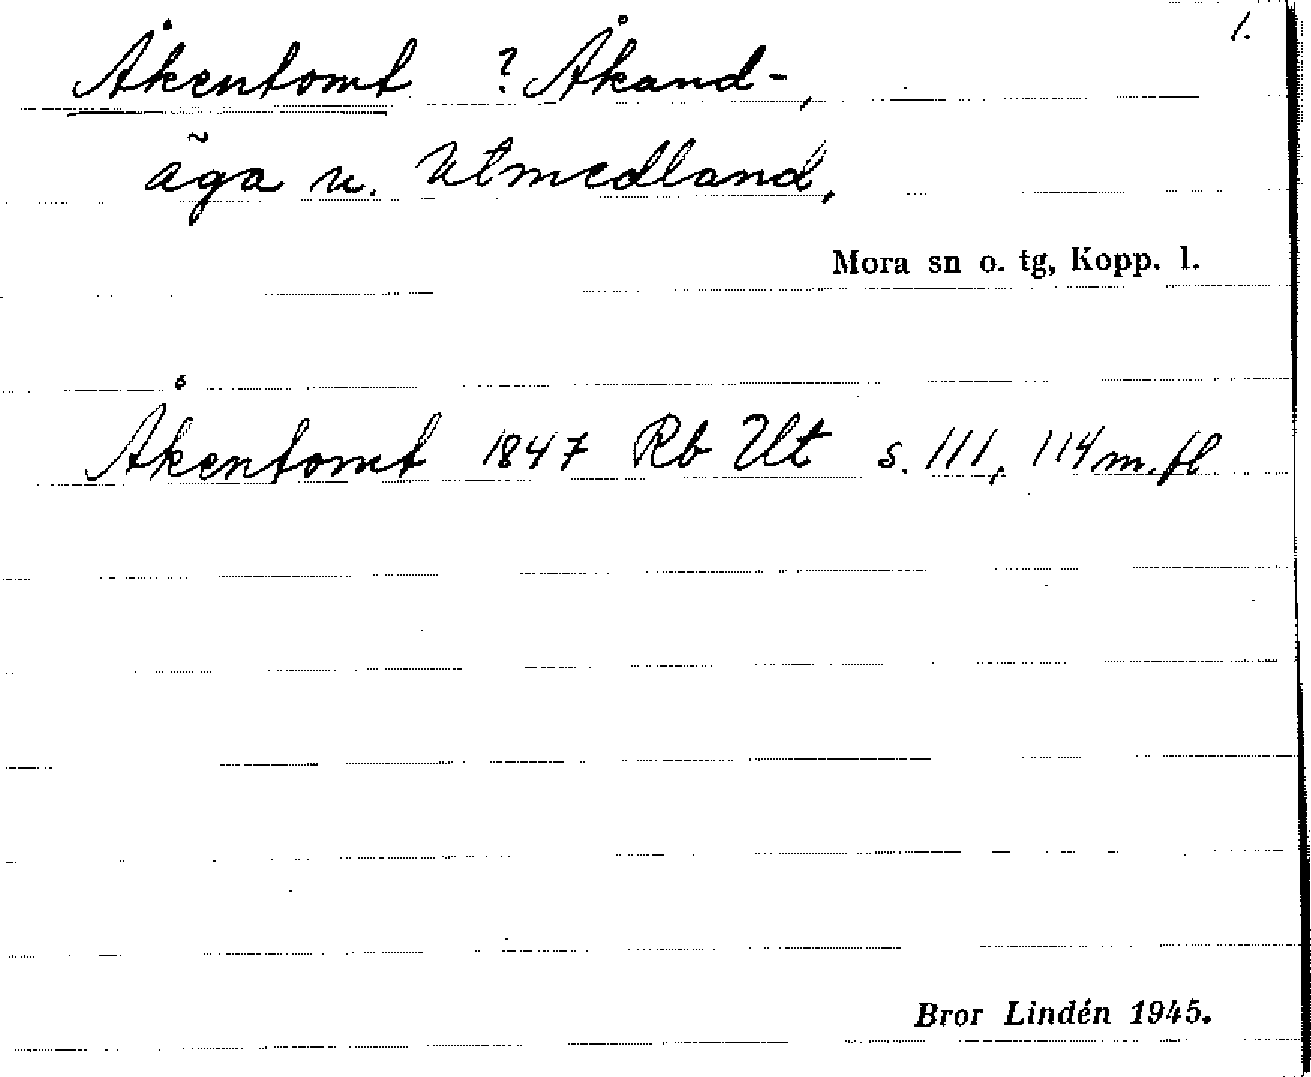 1.
Åkentomt ? Åkand-,
äga u. Utmedland,
Mora sn o. tg, Kopp. l.
Åkentomt 1847 Rb Ut s. 111, 114 m. fl
Bror Lindén 1945.